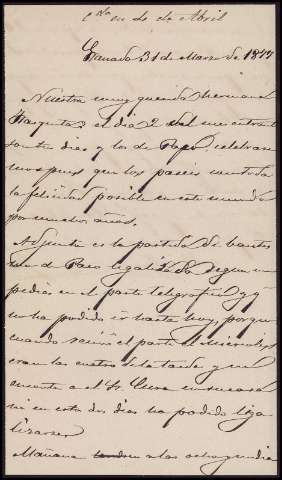 en 4 de Abril
Granada 31 de Marzo de 1877
Nuestra muy querida hermana
el dia 2 del me entrante
son tus dias y los de Paco, celebrare
mos pues que los paseis con toda
la felicidad posible en este mundo
por muchos años.
Adjunta es la partida de bautis
mo de Paco legalizada segun me
pedias en el parte telegrafico y q.
no ha podido ir hasta hoy, porque
cuando recivi el parte el Miercoles
eran las cuatro de la tarde y no
encontre a el Sr. Cura en su casa
ni en estos dos dias ha podido lega
lizarse
Mañana a las ocho y media